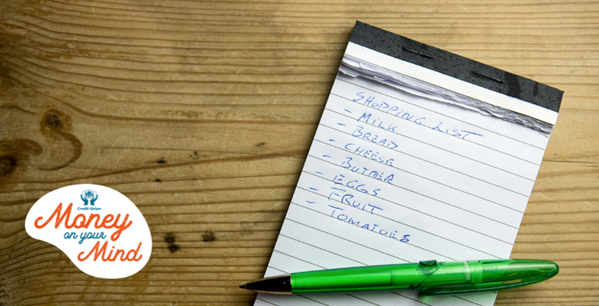 SHOPPING LIST
- MILK
- BREAD
- CHEESE
- BUTTER
- EGGS
- FRUIT
- TOMATOES
Credit Union
Money
on your
Mind